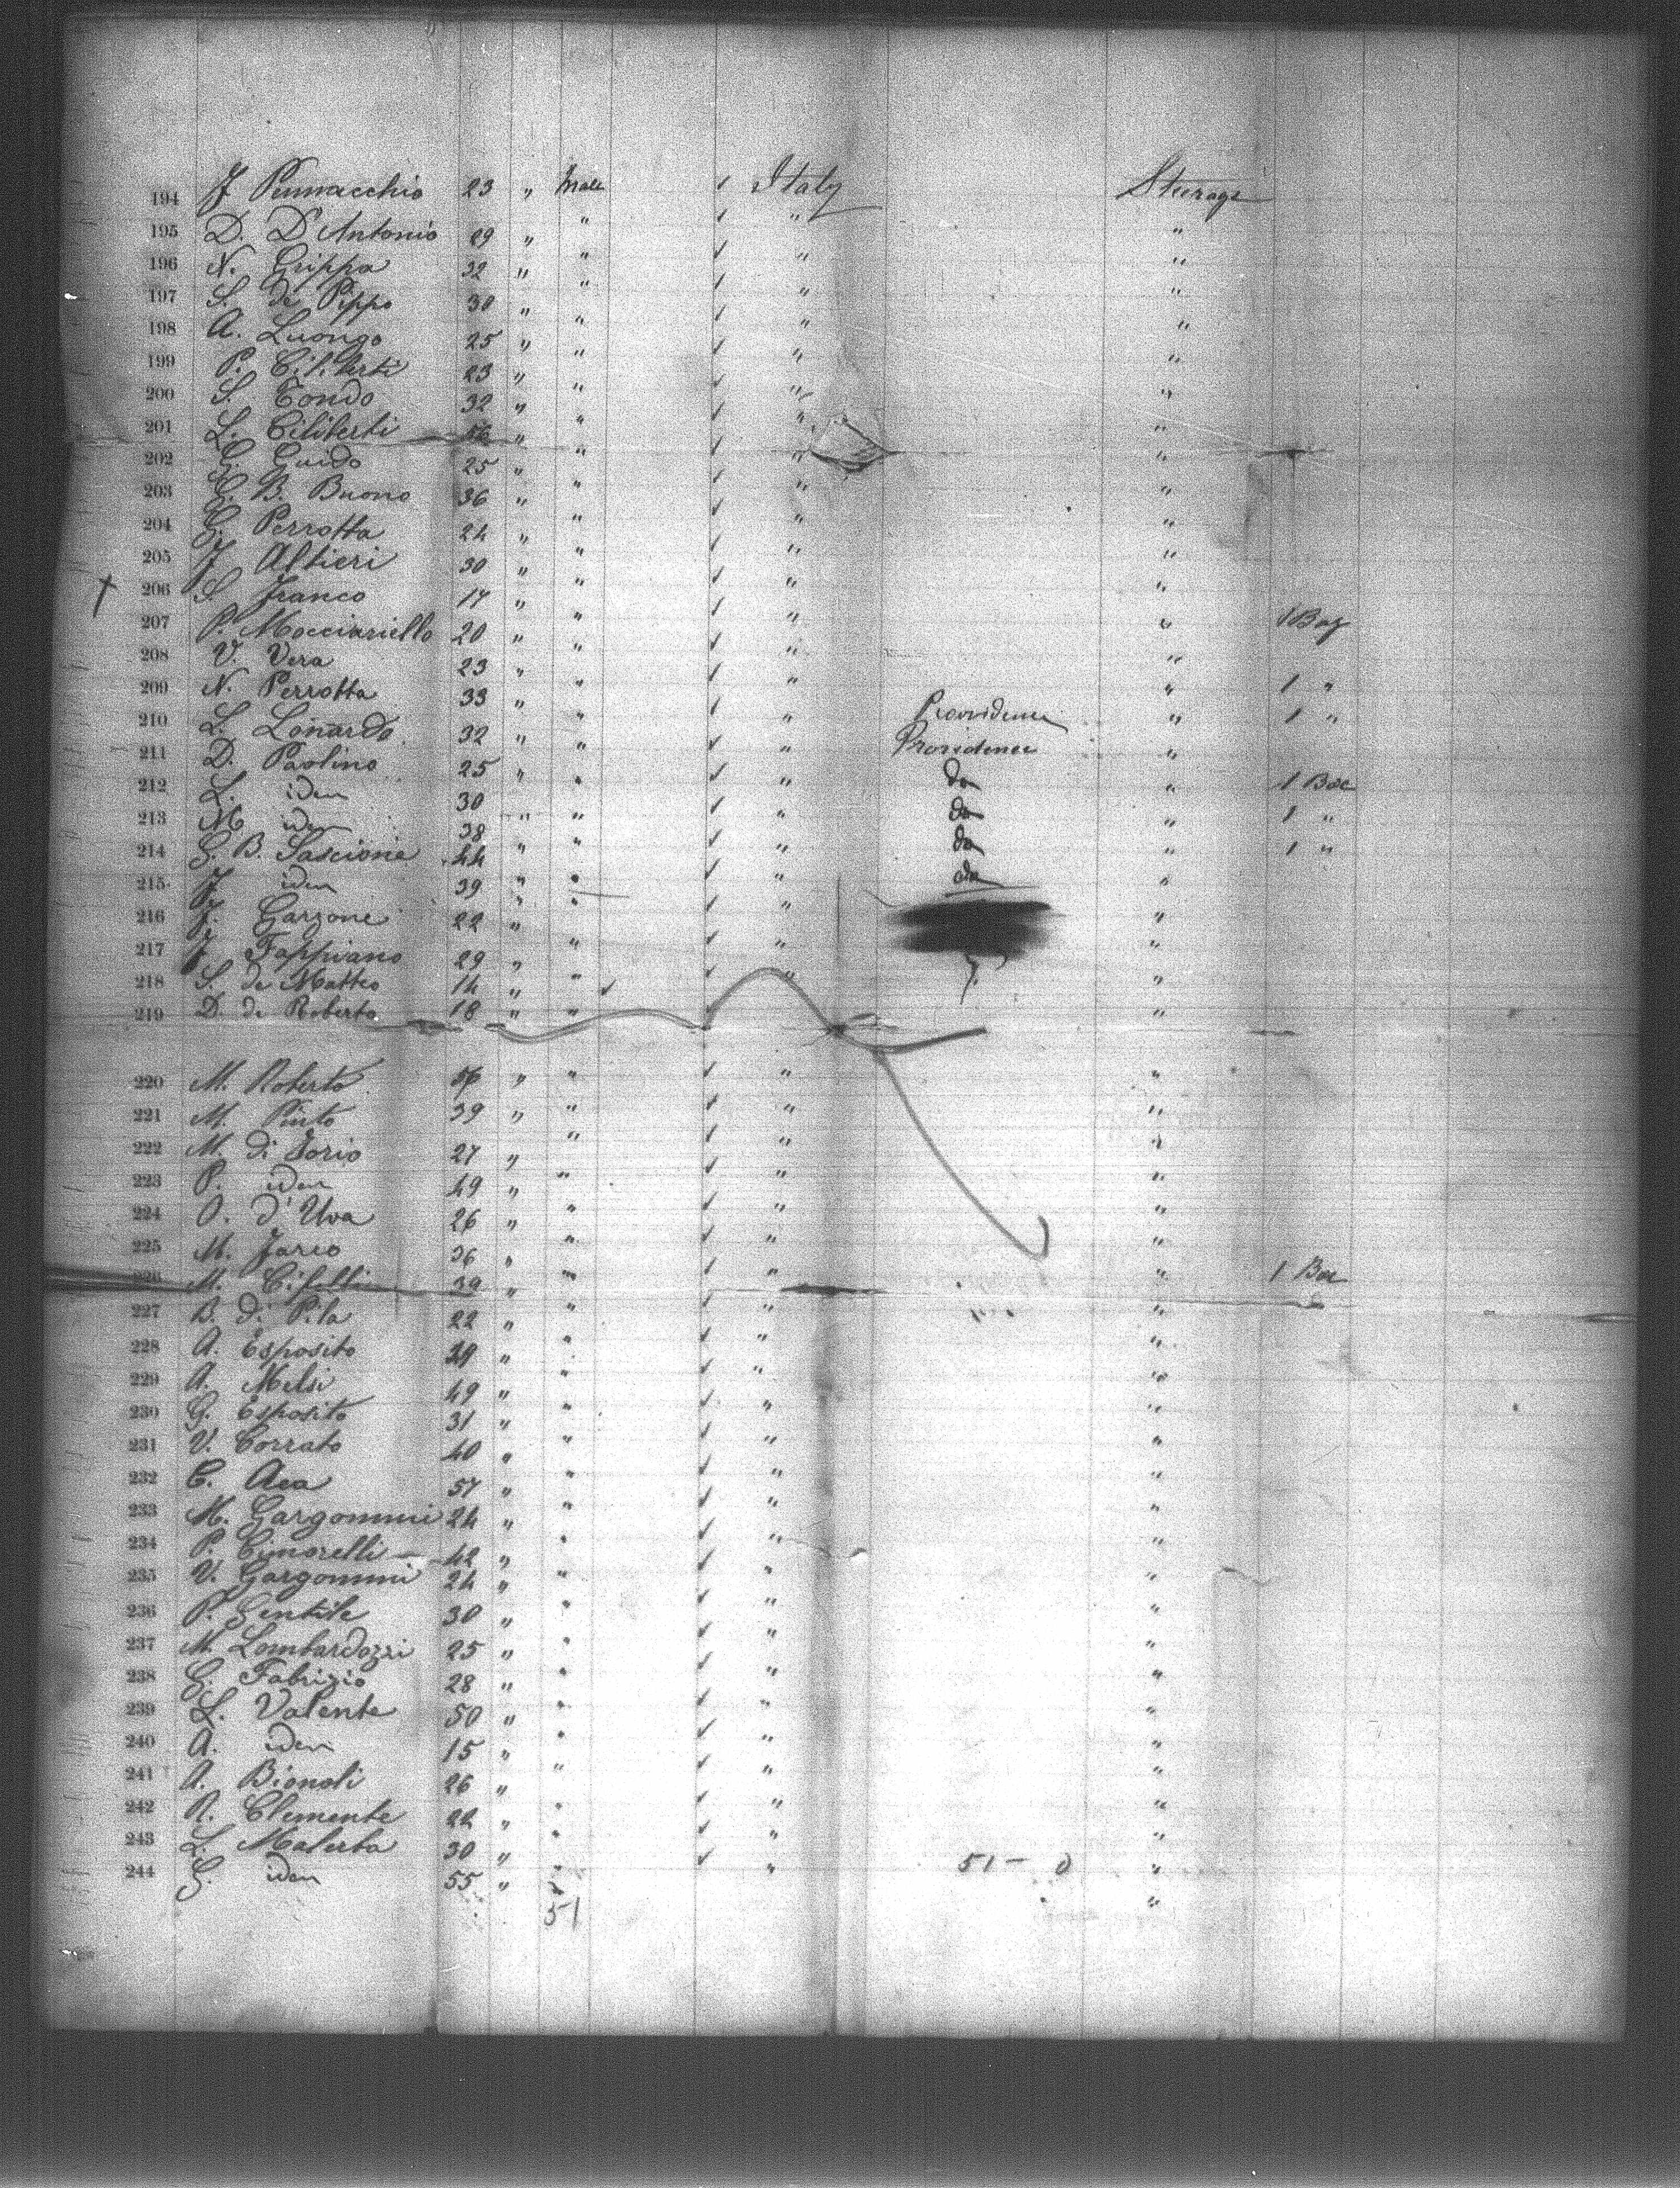 194 J Pennacchio 23 " Male ✓ Italy Steerage
195 D. D'Antonio 29 " " ✓ " "
196 N. Grippa 32 " " ✓ " "
197 S. de Pippo 30 " " ✓ " "
198 A. Luongo 25 " " ✓ " "
199 P. Ciliberti 23 " " ✓ " "
200 S. Tondo 32 " " ✓ " "
201 L. Ciliberti 56 " " ✓ " "
202 G. Guido 25 " " ✓ " "
203 G. B. Buono 36 " " ✓ " "
204 G. Perrotta 24 " " ✓ " "
205 J Altieri 30 " " ✓ " "
206 S Franco 17 " " ✓ " "
207 P. Mocciariello 20 " " ✓ " " 1 Bag
208 V. Vera 23 " " ✓ " "
209 N. Perrotta 33 " " ✓ " " 1 "
210 L. Lonardo 32 " " ✓ " Providence " 1 "
211 D. Paolino 25 " " ✓ " Providence "
212 L. idem 30 " " ✓ " do " 1 Box
213 M idem 38 " " ✓ " do " 1 "
214 G. B. Sascione 44 " " ✓ " do " 1 "
215 J idem 39 " " ✓ " do "
216 J. Garzone 22 " " ✓ " "
217 J Fappiano 29 " " ✓ " "
218 S. de Matteo 14 " " ✓ " "
219 D. de Roberto 18 " " "
220 M. Roberto 56 " " ✓ " "
221 M. Pinto 39 " " ✓ " "
222 M. di Iorio 27 " " ✓ " "
223 P. idem 49 " " ✓ " "
224 O. d'Uva 26 " " ✓ " "
225 M. Jario 36 " " ✓ " "
226 M. Cifelli 39 " " ✓ " " 1 Box
227 B. di Pila 22 " " ✓ " "
228 A. Esposito 29 " " ✓ " "
229 A. Melsi 49 " " ✓ " "
230 G. Esposito 31 " " ✓ " "
231 V. Corrato 40 " " ✓ " "
232 C. Aea 57 " " ✓ " "
233 M. Gargommi 24 " " ✓ " "
234 P. Cimorelli 42 " " ✓ " "
235 V. Gargommi 24 " " ✓ " "
236 P. Gentile 30 " " ✓ " "
237 M. Lombardozzi 25 " " ✓ " "
238 G. Fabrizio 28 " " ✓ " "
239 L. Valente 50 " " ✓ " "
240 A. idem 15 " " ✓ " "
241 A. Bionoli 26 " " ✓ " "
242 A. Clemente 22 " " ✓ " "
243 L. Malerba 30 " " ✓ " "
244 G. idem 55 " " " 51 - 0 "
51